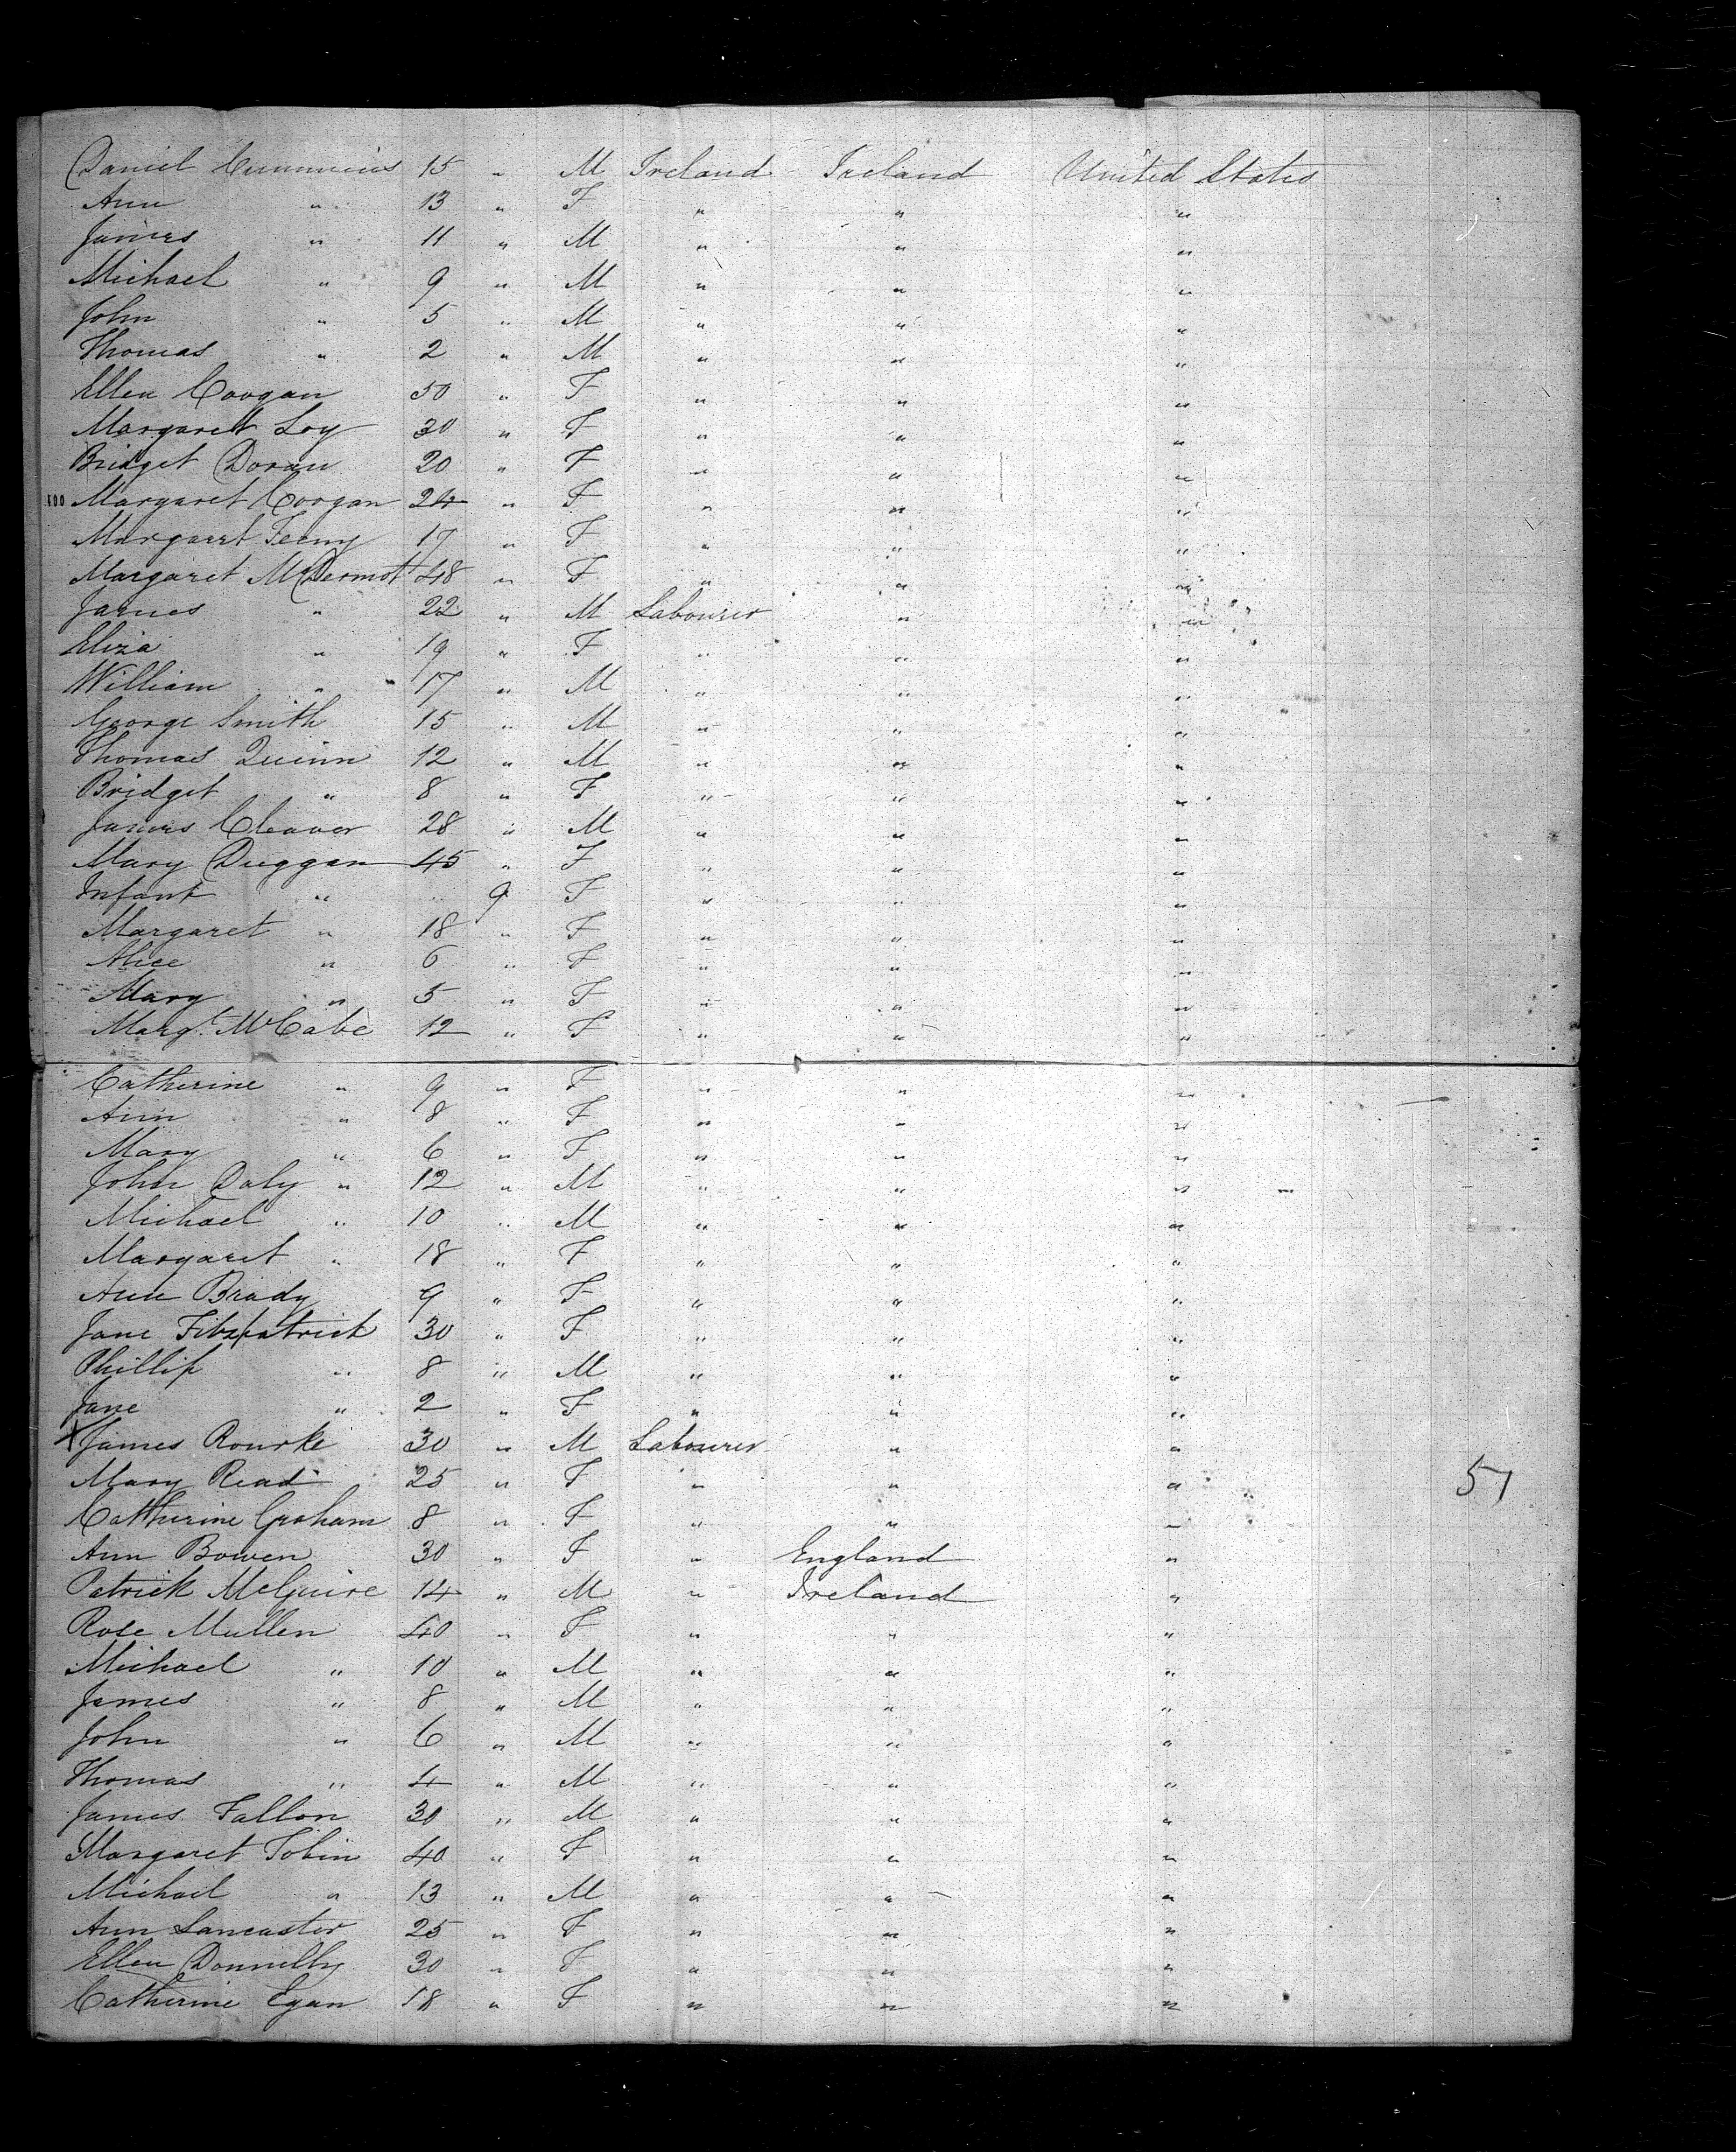 Daniel Cummins 15 " M Ireland Ireland United States
Ann " 13 " F " " "
James " 11 " M " " "
Michael " 9 " M " " "
John " 5 " M " " "
Thomas " 2 " M " " "
Ellen Coogan 50 " F " " "
Margaret Loy 30 " F " " "
Bridget Doran 20 " F " " "
100 Margaret Coogan 24 " F " " "
Margaret Feeny 17 " F " " "
Margaret McDermot 48 " F " " "
James " 22 " M Labourer " "
Eliza " 19 " F " " "
William " 17 " M " " "
George Smith 15 " M " " "
Thomas Quinn 12 " M " " "
Bridget " 8 " F " " "
James Cleaver 28 " M " " "
Mary Duggan 45 " F " " "
Infant " " 9 F " " "
Margaret " 18 " F " " "
Alice " 6 " F " " "
Mary " 5 " F " " "
Margt. McCabe 12 " F " " "
Catherine " 9 " F " " "
Ann " 8 " F " " "
Mary " 6 " F " " "
John Daly " 12 " M " " "
Michael " 10 " M " " "
Margaret " 18 " F " " "
Ann Brady 9 " F " " "
Jane Fitzpatrick 30 " F " " "
Phillip " 8 " M " " "
Jane " 2 " F " " "
X James Rourke 30 " M Labourer " "
Mary Read 25 " F " " " 51
Catherine Graham 8 " F " " "
Ann Bowen 30 " F " England "
Patrick McGuire 14 " M " Ireland "
Rose Mullen 40 " F " " "
Michael " 10 " M " " "
James " 8 " M " " "
John " 6 " M " " "
Thomas " 4 " M " " "
James Fallon 30 " M " " "
Margaret Tobin 40 " F " " "
Michael " 13 " M " " "
Ann Lancaster 25 " F " " "
Ellen Donnelly 30 " F " " "
Catherine Egan 18 " F " " "